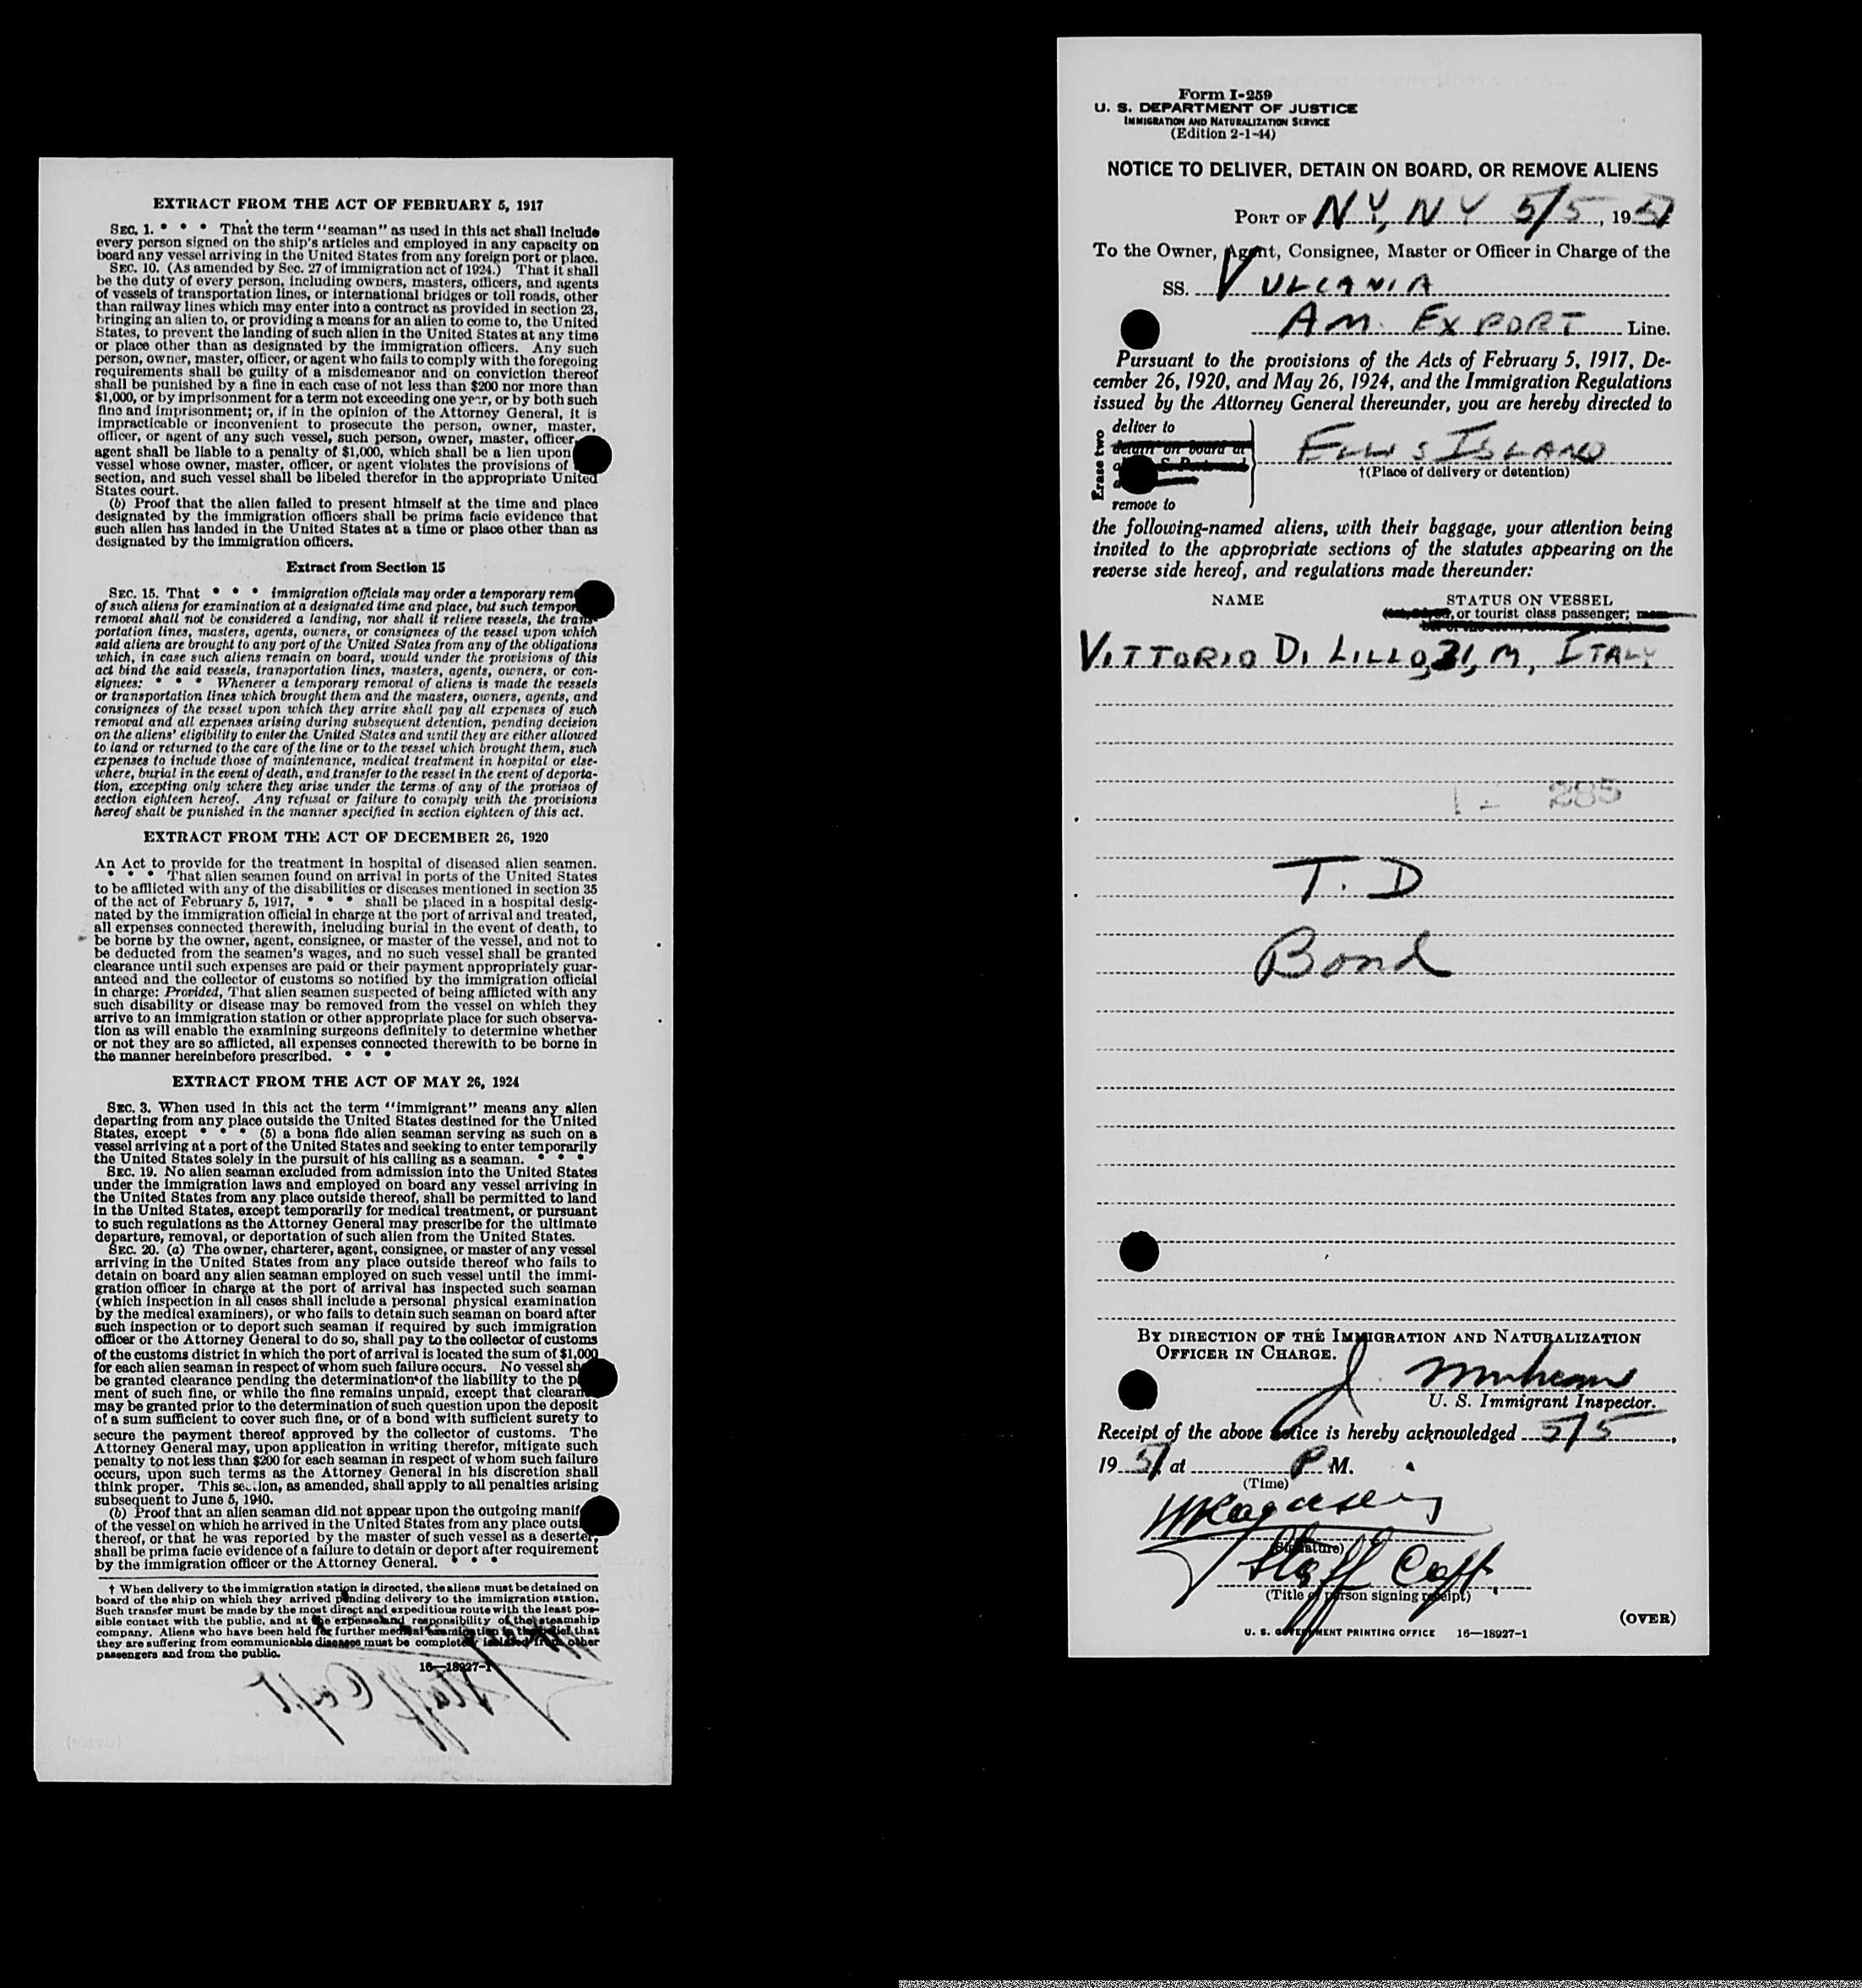 EXTRACT FROM THE ACT OF FEBRUARY 5, 1917
SEC. 1. * * * That the term "seaman" as used in this act shall include
every person signed on the ship's articles and employed in any capacity on
board any vessel arriving in the United States from any foreign port or place.
SEC. 10. (As amended by Sec. 27 of immigration act of 1924.) That it shall
be the duty of every person, including owners, masters, officers, and agents
of vessels of transportation lines, or international bridges or toll roads, other
than railway lines which may enter into a contract as provided in section 23,
bringing an alien to, or providing a means for an alien to come to, the United
States, to prevent the landing of such alien in the United States at any time
or place other than as designated by the immigration officers. Any such
person, owner, master, officer, or agent who fails to comply with the foregoing
requirements shall be guilty of a misdemeanor and on conviction thereof
shall be punished by a fine in each case of not less than $200 nor more than
$1,000, or by imprisonment for a term not exceeding one year, or by both such
fine and imprisonment; or, if in the opinion of the Attorney General, it is
impracticable or inconvenient to prosecute the person, owner, master,
officer, or agent of any such vessel, such person, owner, master, officer,
agent shall be liable to a penalty of $1,000, which shall be a lien upon
vessel whose owner, master, officer, or agent violates the provisions of
section, and such vessel shall be libeled therefor in the appropriate United
States court.
(b) Proof that the alien failed to present himself at the time and place
designated by the immigration officers shall be prima facie evidence that
such alien has landed in the United States at a time or place other than as
designated by the immigration officers.
Extract from Section 15
SEC. 15. That * * * immigration officials may order a temporary rem
of such aliens for examination at a designated time and place, but such tempor
removal shall not be considered a landing, nor shall it relieve vessels, the trans-
portation lines, masters, agents, owners, or consignees of the vessel upon which
said aliens are brought to any port of the United States from any of the obligations
which, in case such aliens remain on board, would under the provisions of this
act bind the said vessels, transportation lines, masters, agents, owners, or con-
signees: * * * Whenever a temporary removal of aliens is made the vessels
or transportation lines which brought them and the masters, owners, agents, and
consignees of the vessel upon which they arrive shall pay all expenses of such
removal and all expenses arising during subsequent detention, pending decision
on the aliens' eligibility to enter the United States and until they are either allowed
to land or returned to the care of the line or to the vessel which brought them, such
expenses to include those of maintenance, medical treatment in hospital or else-
where, burial in the event of death, and transfer to the vessel in the event of deporta-
tion, excepting only where they arise under the terms of any of the provisos of
section eighteen hereof. Any refusal or failure to comply with the provisions
hereof shall be punished in the manner specified in section eighteen of this act.
EXTRACT FROM THE ACT OF DECEMBER 26, 1920
An Act to provide for the treatment in hospital of diseased alien seamen.
* * * That alien seamen found on arrival in ports of the United States
to be afflicted with any of the disabilities or diseases mentioned in section 35
of the act of February 5, 1917, * * * shall be placed in a hospital desig-
nated by the immigration official in charge at the port of arrival and treated,
all expenses connected therewith, including burial in the event of death, to
be borne by the owner, agent, consignee, or master of the vessel, and not to
be deducted from the seamen's wages, and no such vessel shall be granted
clearance until such expenses are paid or their payment appropriately guar-
anteed and the collector of customs so notified by the immigration official
in charge: Provided, That alien seamen suspected of being afflicted with any
such disability or disease may be removed from the vessel on which they
arrive to an immigration station or other appropriate place for such observa-
tion as will enable the examining surgeons definitely to determine whether
or not they are so afflicted, all expenses connected therewith to be borne in
the manner hereinbefore prescribed. * * *
EXTRACT FROM THE ACT OF MAY 26, 1924
SEC. 3. When used in this act the term "immigrant" means any alien
departing from any place outside the United States destined for the United
States, except * * * (5) a bona fide alien seaman serving as such on a
vessel arriving at a port of the United States and seeking to enter temporarily
the United States solely in the pursuit of his calling as a seaman. * * *
SEC. 19. No alien seaman excluded from admission into the United States
under the immigration laws and employed on board any vessel arriving in
the United States from any place outside thereof, shall be permitted to land
in the United States, except temporarily for medical treatment, or pursuant
to such regulations as the Attorney General may prescribe for the ultimate
departure, removal, or deportation of such alien from the United States.
SEC. 20. (a) The owner, charterer, agent, consignee, or master of any vessel
arriving in the United States from any place outside thereof who fails to
detain on board any alien seaman employed on such vessel until the immi-
gration officer in charge at the port of arrival has inspected such seaman
(which inspection in all cases shall include a personal physical examination
by the medical examiners), or who fails to detain such seaman on board after
such inspection or to deport such seaman if required by such immigration
officer or the Attorney General to do so, shall pay to the collector of customs
of the customs district in which the port of arrival is located the sum of $1,000
for each alien seaman in respect of whom such failure occurs. No vessel sh
be granted clearance pending the determination of the liability to the p
ment of such fine, or while the fine remains unpaid, except that clearan
may be granted prior to the determination of such question upon the deposit
of a sum sufficient to cover such fine, or of a bond with sufficient surety to
secure the payment thereof approved by the collector of customs. The
Attorney General may, upon application in writing therefor, mitigate such
penalty to not less than $200 for each seaman in respect of whom such failure
occurs, upon such terms as the Attorney General in his discretion shall
think proper. This section, as amended, shall apply to all penalties arising
subsequent to June 5, 1940.
(b) Proof that an alien seaman did not appear upon the outgoing manif
of the vessel on which he arrived in the United States from any place outs
thereof, or that he was reported by the master of such vessel as a deserter,
shall be prima facie evidence of a failure to detain or deport after requirement
by the immigration officer or the Attorney General. * * *
† When delivery to the immigration station is directed, the aliens must be detained on
board of the ship on which they arrived pending delivery to the immigration station.
Such transfer must be made by the most direct and expeditious route with the least pos-
sible contact with the public, and at the expense and responsibility of the steamship
company. Aliens who have been held for further medical examination in the belief that
they are suffering from communicable diseases must be completely isolated from other
passengers and from the public.
16—18927-1
Form I-259
U. S. DEPARTMENT OF JUSTICE
IMMIGRATION AND NATURALIZATION SERVICE
(Edition 2-1-44)
NOTICE TO DELIVER, DETAIN ON BOARD, OR REMOVE ALIENS
PORT OF NY, NY 5/5, 1951
To the Owner, Agent, Consignee, Master or Officer in Charge of the
SS. VULCANIA
AM. EXPORT Line.
Pursuant to the provisions of the Acts of February 5, 1917, De-
cember 26, 1920, and May 26, 1924, and the Immigration Regulations
issued by the Attorney General thereunder, you are hereby directed to
Erase two
deliver to
detain on board at
remove to
ELLIS ISLAND
†(Place of delivery or detention)
the following-named aliens, with their baggage, your attention being
invited to the appropriate sections of the statutes appearing on the
reverse side hereof, and regulations made thereunder:
NAME STATUS ON VESSEL
or tourist class passenger;
VITTORIO DI LILLO, 31, M, ITALY
1- 285
T. D
Bond
BY DIRECTION OF THE IMMIGRATION AND NATURALIZATION
OFFICER IN CHARGE.
J.
U. S. Immigrant Inspector.
Receipt of the above notice is hereby acknowledged 5/5,
1951 at P M.
(Time)
(Signature)
Staff Capt.
(Title of person signing receipt)
(OVER)
U. S. GOVERNMENT PRINTING OFFICE 16—18927-1